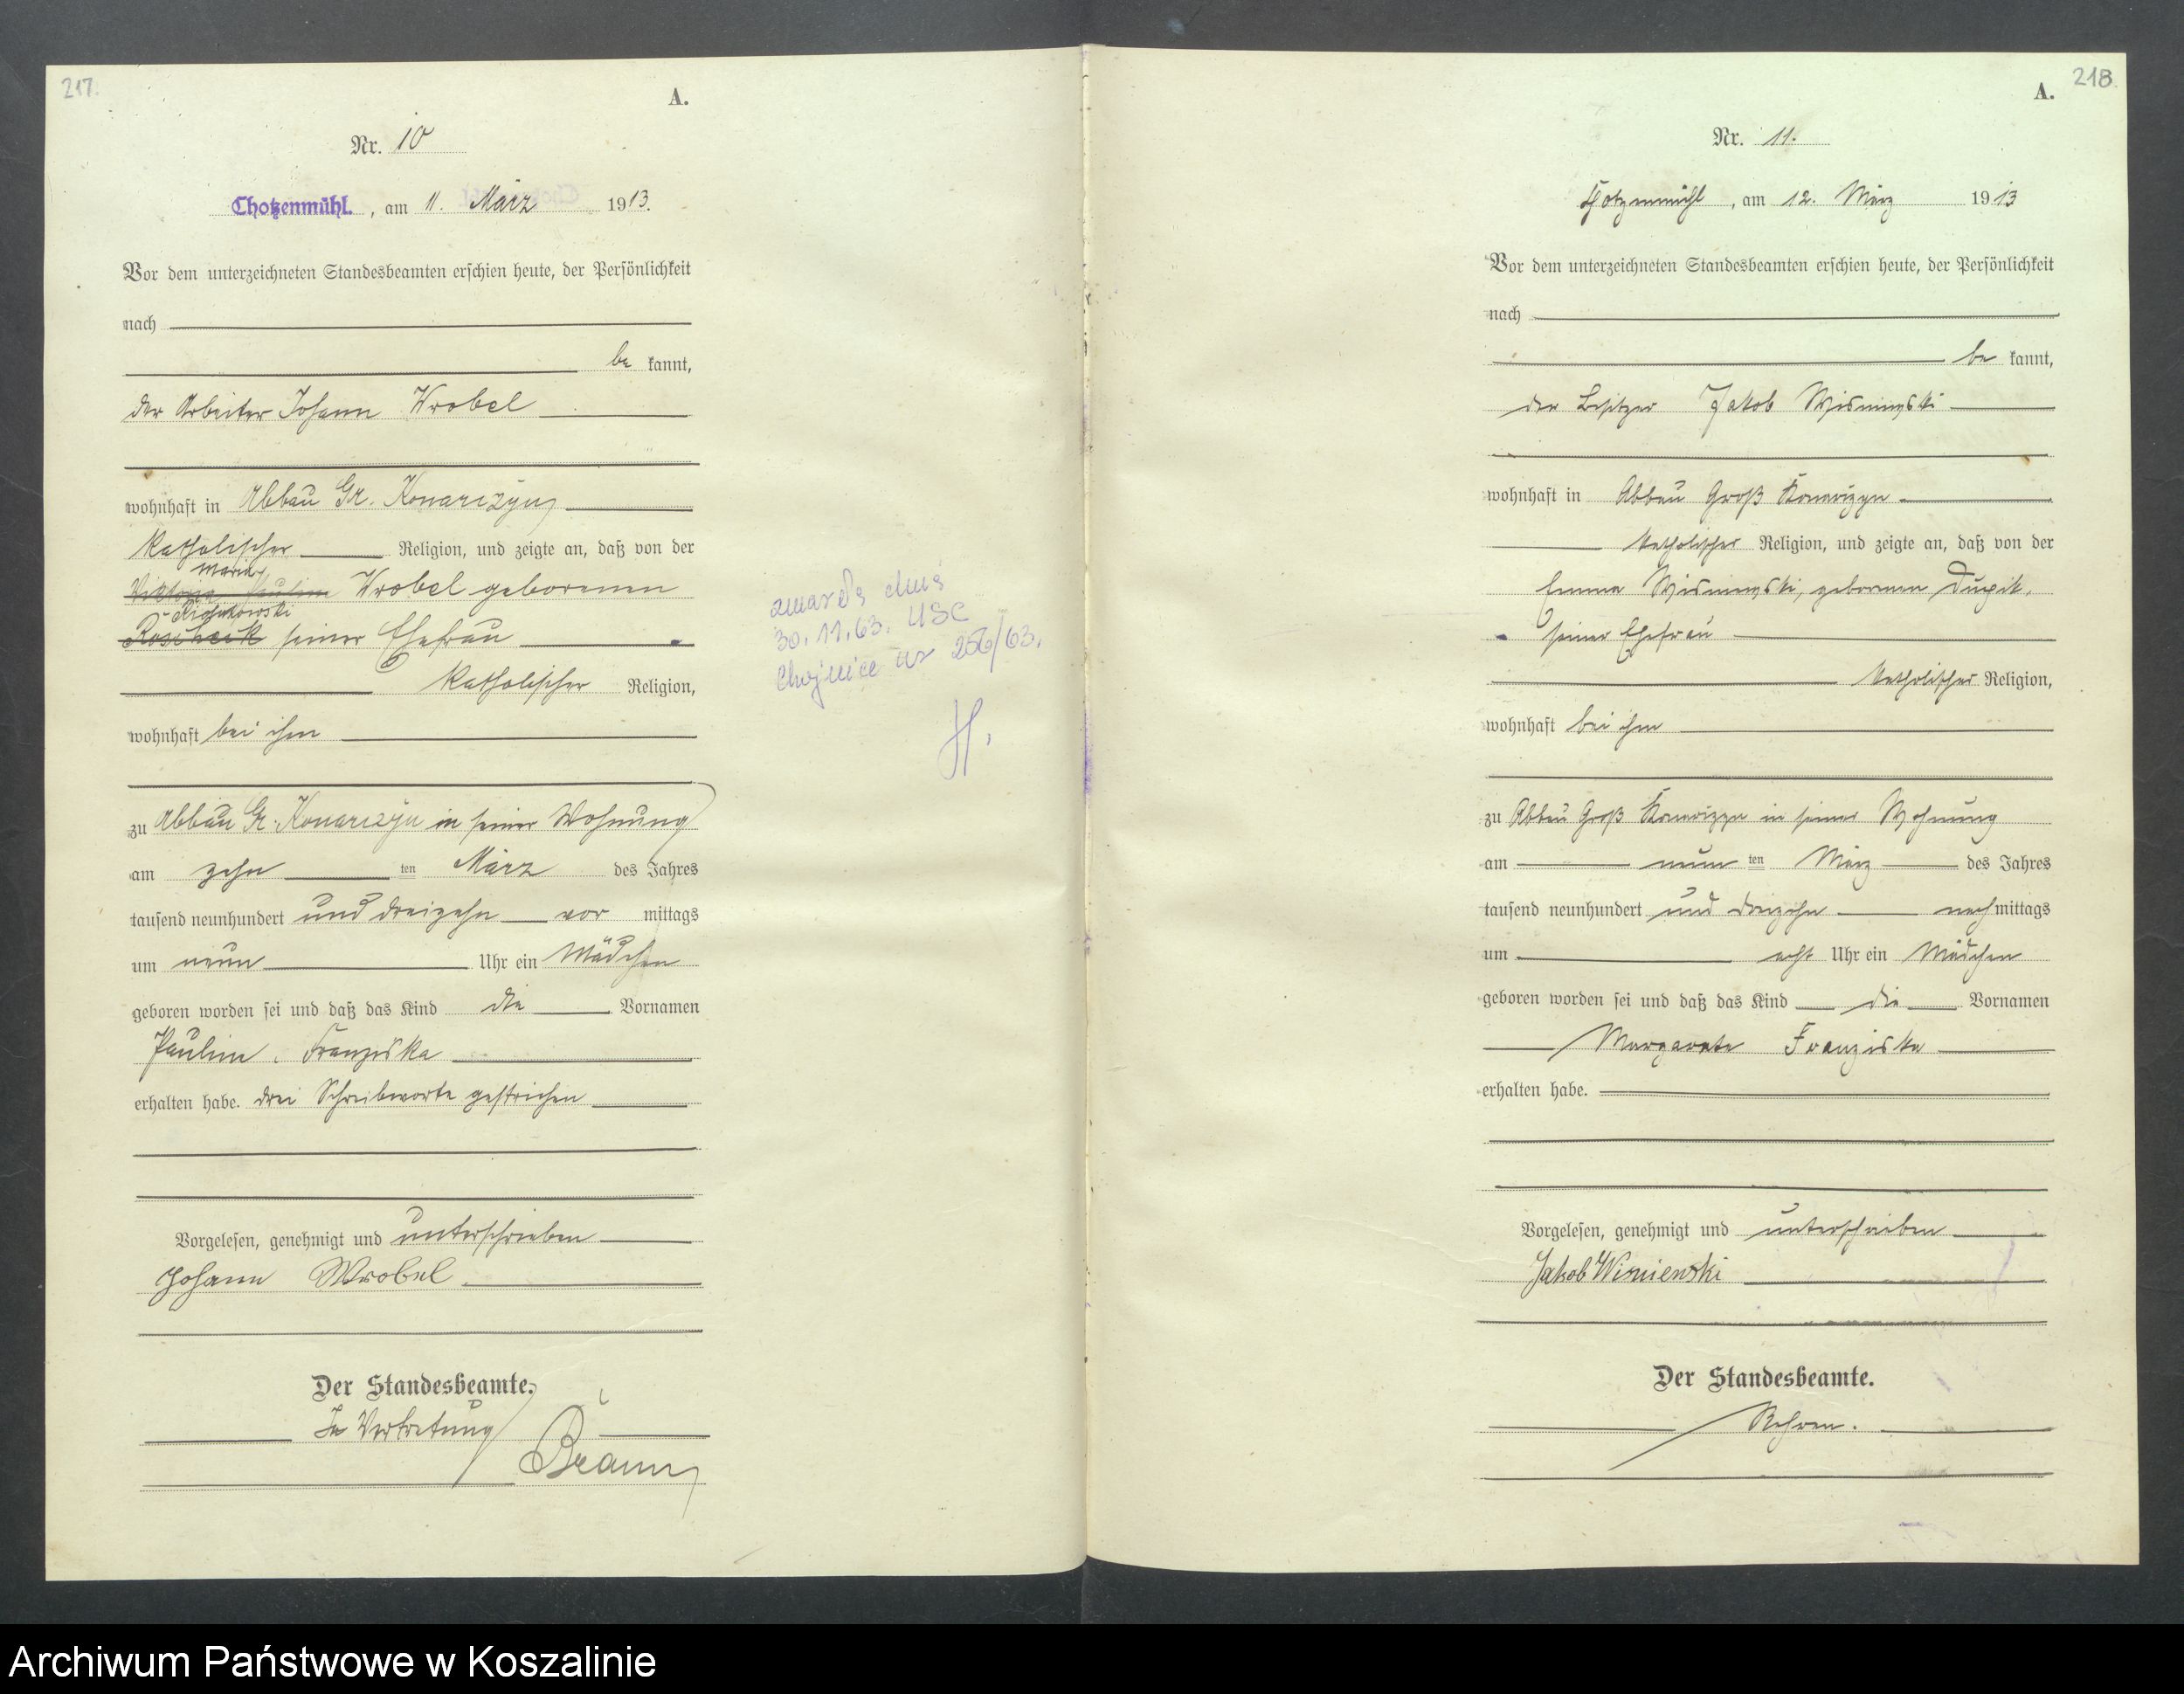 217.
A.
Nr. 10
Chotzenmühl. , am 11. März 1913.
Vor dem unterzeichneten Standesbeamten erschien heute, der Persönlichkeit
nach
be kannt,
der Arbeiter Johann Wrobel
wohnhaft in Abbau Gr. Konarczyn
katholischer Religion, und zeigte an, daß von der
Maria
Viktoria Paulina Wrobel geborenen
seiner Ehefrau
katholischer Religion,
wohnhaft bei ihm
zu Abbau Gr. Konarczyn in seiner Wohnung
am zehn ten März des Jahres
tausend neunhundert und dreizehn vor mittags
um neun Uhr ein Mädchen
geboren worden sei und daß das Kind die Vornamen
Franziska
erhalten habe. drei Schreibworte gestrichen
Vorgelesen, genehmigt und unterschrieben
Johann Wrobel
Der Standesbeamte.
In Vertretung
Braun
zmarła dnia
30.11.63. USC
Chojnice nr 256/63.
218.
A.
Nr. 11.
am 12. März 1913
Vor dem unterzeichneten Standesbeamten erschien heute, der Persönlichkeit
nach
be kannt,
der Besitzer Jakob
wohnhaft in Abbau Groß Konarczyn
katholischer Religion, und zeigte an, daß von der
Emma geborenen
seiner Ehefrau
katholischer Religion,
wohnhaft bei ihm
zu Abbau Groß Konarczyn in seiner Wohnung
am neun ten März des Jahres
tausend neunhundert und dreizehn nach mittags
um acht Uhr ein Mädchen
geboren worden sei und daß das Kind die Vornamen
Margarete Franziska
erhalten habe.
Vorgelesen, genehmigt und unterschrieben
Jakob Wisnienski
Der Standesbeamte.
Archiwum Państwowe w Koszalinie